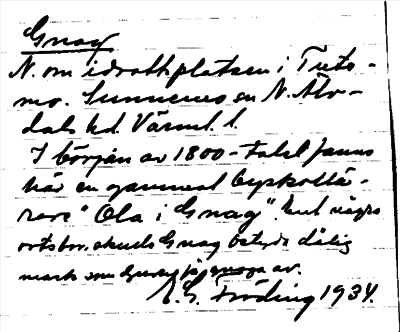 Gnag
N. om idrottsplatsen i Tuts-
mo. Sunnemo sn N. Älv-
dals hd. Värml. l.
I början av 1800-talet fanns
här en gammal byskollä-
rare "Ola i Gnag". Enl. några
ortsbor, skulle Gnag betyda dålig
mark som djuren gnaga av.
E. G. Fröding 1934.